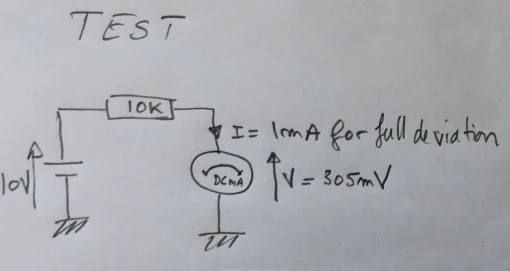 TEST
10K
I = 1mA for full deviation
10V
DCmA
V = 305mV